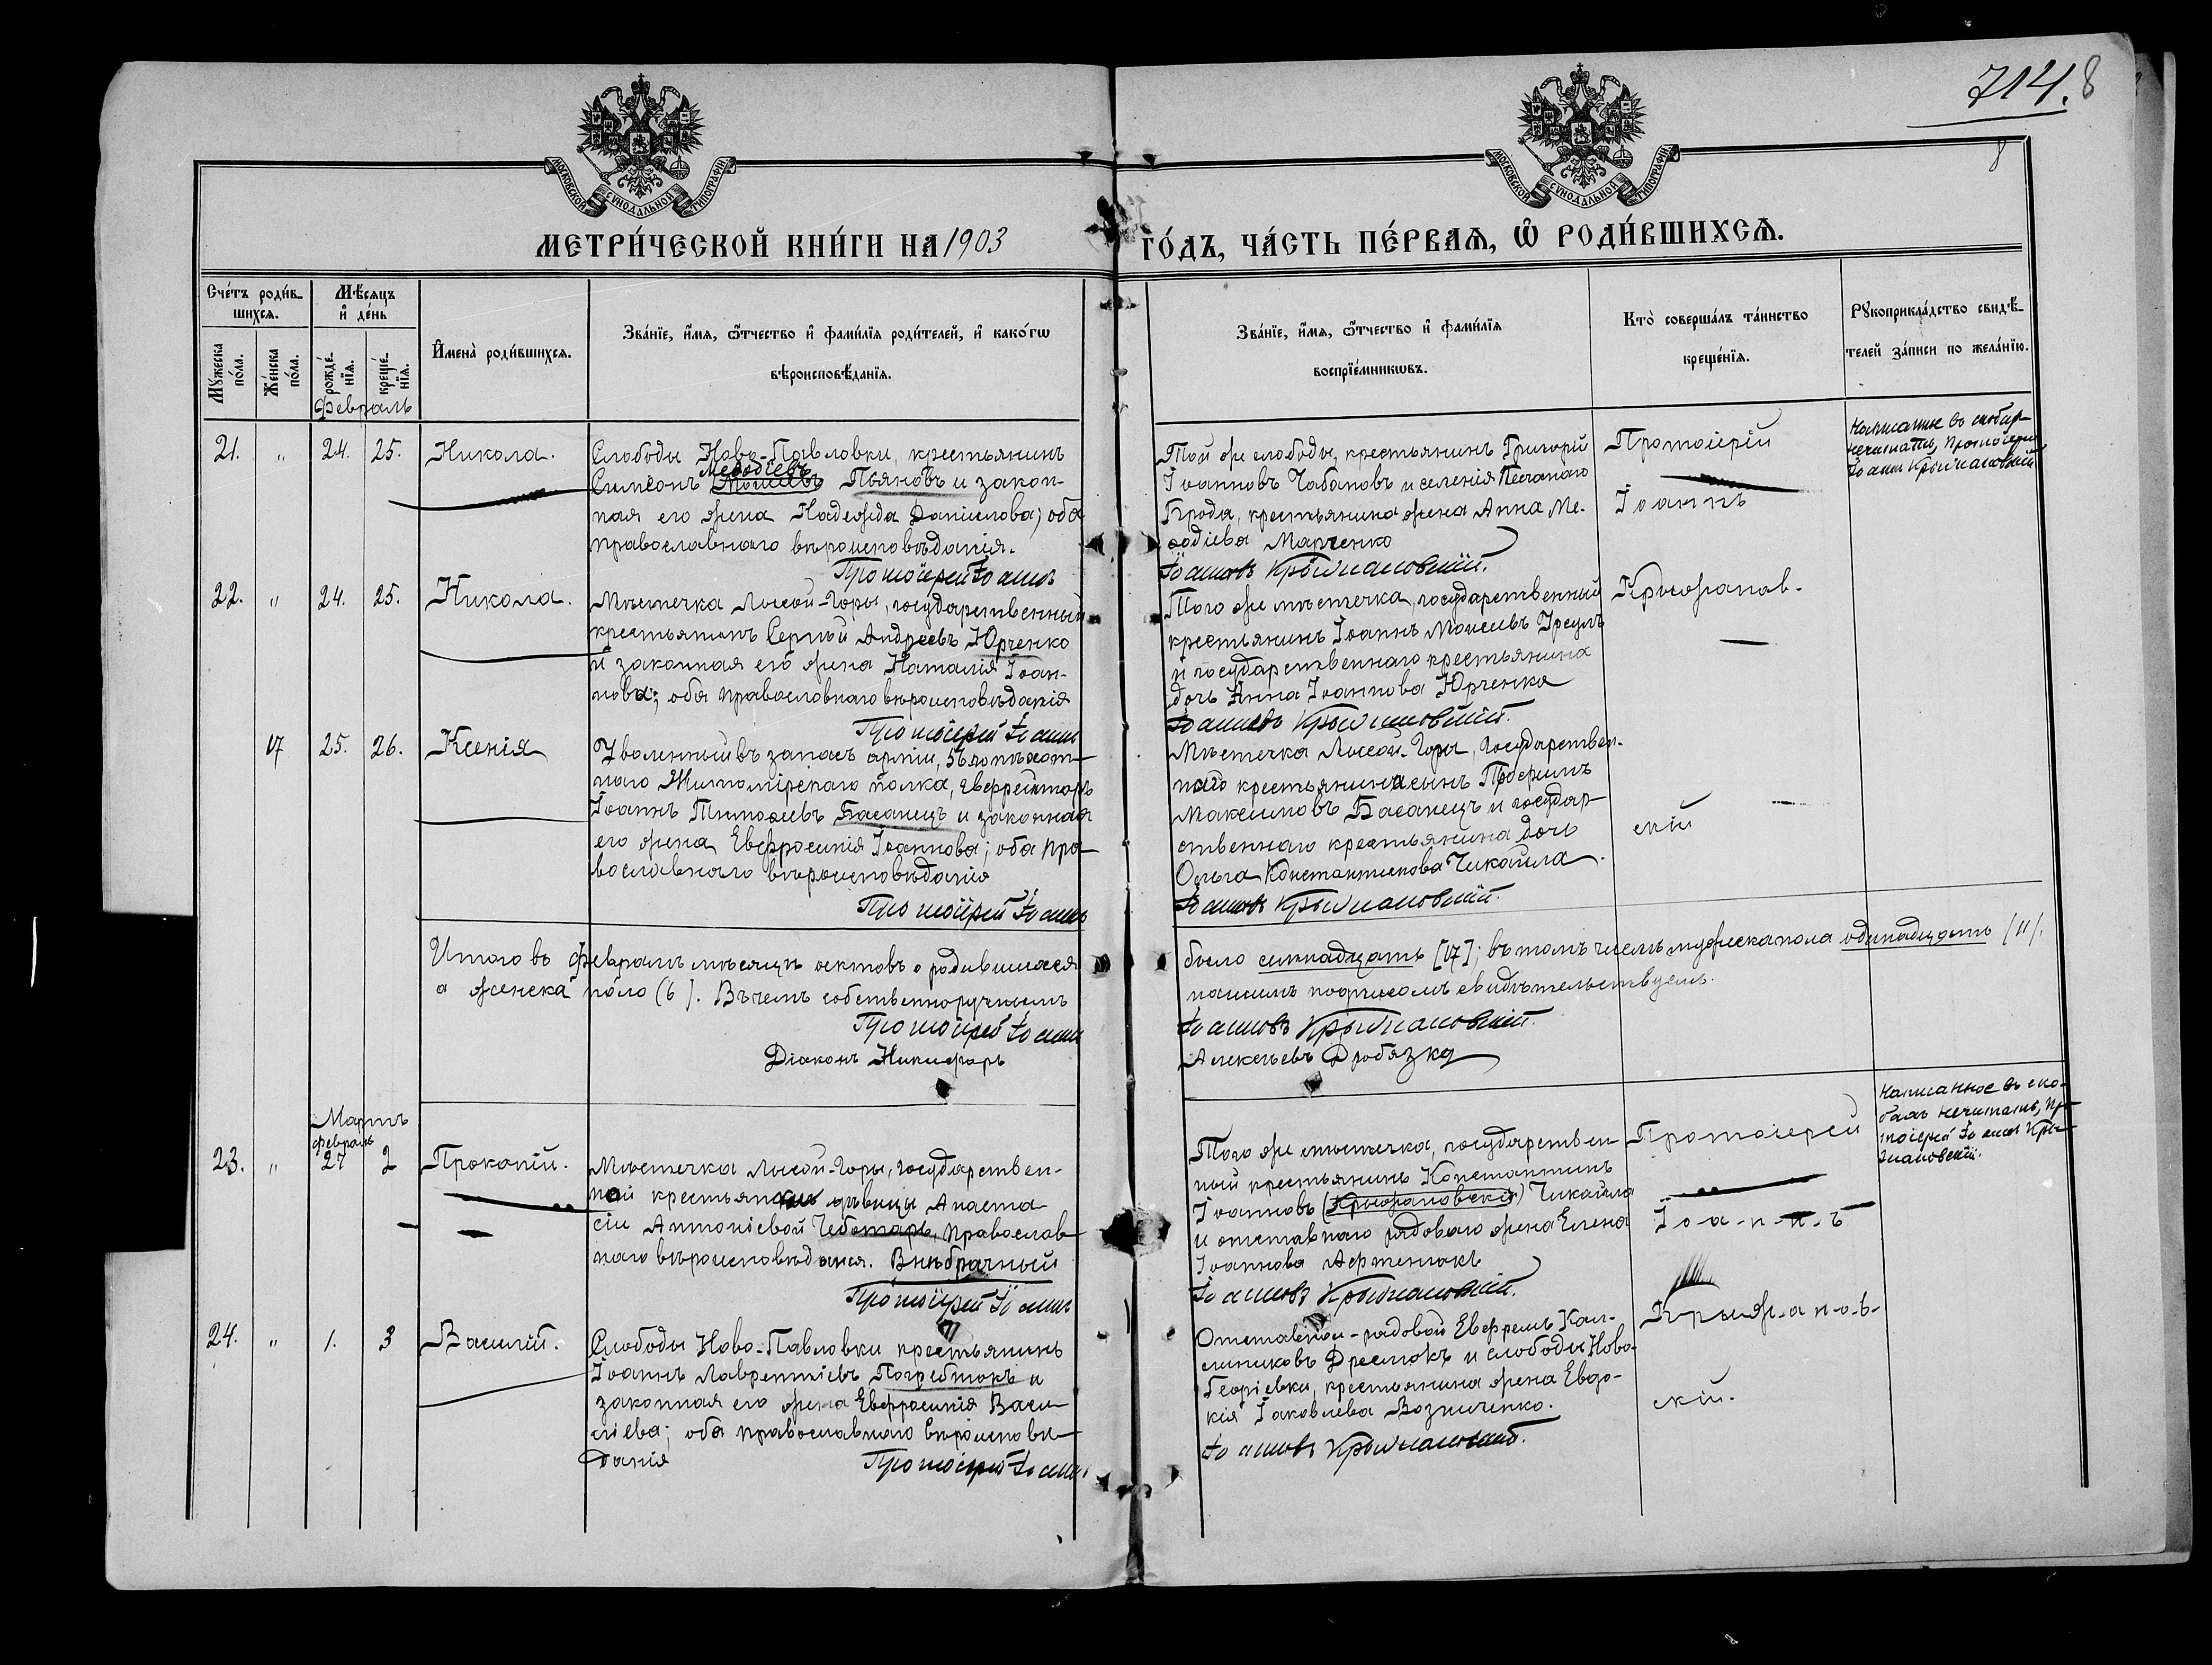 714. 8
8
МОСКОВСКОЙ СѴНОДАЛЬНОЙ ТИПОГРАФІИ
МОСКОВСКОЙ СѴНОДАЛЬНОЙ ТИПОГРАФІИ
МЕТРИ́ЧЕСКОЙ КНИ́ГИ НА 1903
ГО́ДЪ, ЧА́СТЬ ПЕ́РВАЯ, Ѿ РОДИ́ВШИХСѦ.
Сче́тъ роди́в-
шихсѧ.
Мѣ́сяцъ
и҆ де́нь
Мꙋжеска по́ла.
Же́нска по́ла.
рожде́-
нїѧ.
креще́-
нїѧ.
И҆мена̀ роди́вшихсѧ.
Зва́нїе, и҆́мѧ, ѻ҆́тчество и҆ фами́лїѧ роди́телей, и҆ како́гѡ
вѣроисповѣ́данїѧ.
Зва́нїе, и҆́мѧ, ѻ҆́тчество и҆ фами́лїѧ
воспрїе́мникѡвъ.
Кто̀ соверша́лъ та́инство
креще́нїѧ.
Рꙋкоприкла́дство свидѣ́-
телей за́писи по жела́нїю.
Февраль
21. " 24. 25. Никола.
Слободы Ново-Павловки, крестьянинъ
Меѳодіевъ
Симеонъ Пьяновъ и закон-
ная его жена Надежда Даніилова; оба
православнаго вѣроисповѣданія.
Протоіерей Іоаннъ
Той же слободы, крестьянинъ Григорій
Іоанновъ Чабановъ и селенія Песчанаго
Брода, крестьянина жена Анна Ме-
ѳодіева Марченко
Іоанновъ Крыжановскій.
Протоіерей
Іоаннъ
Написанное въ скобкахъ
нечитать, Протоіерей
Іоаннъ Крыжановскій
22. " 24. 25. Никола.
Мѣстечка Лысой-Горы, государственный
крестьянинъ Сергѣй Андреевъ Юрченко
и законная его жена Наталія Іоан-
нова; оба православнаго вѣроисповѣданія
Протоіерей Іоаннъ
Того же мѣстечка, государственный
крестьянинъ Іоаннъ Моисеевъ
и государственнаго крестьянина
дочь Анна Іоаннова Юрченко
Іоанновъ Крыжановскій.
Крыжанов-
17 25. 26. Ксенія
Уволенный въ запасъ арміи, 56го пѣхот-
наго Житомірскаго полка, ефрейторъ
Іоаннъ Тимоѳеевъ Басанецъ и законная
его жена Евфросинія Іоаннова; оба пра-
вославнаго вѣроисповѣданія
Протоіерей Іоаннъ
Мѣстечка Лысой-Горы, государствен-
наго крестьянина сынъ
Максимовъ Басанецъ и государ-
ственнаго крестьянина дочь
Ольга Константинова Чикайла.
Іоанновъ Крыжановскій.
скій
Итого въ февралѣ мѣсяцѣ актовъ о родившихся
а женска пола (6). Въ чемъ собственноручнымъ
Протоіерей Іоаннъ
Діаконъ Никифоръ
было семнадцать [17]; въ томъ числѣ мужеска пола одинадцать (11).
нашимъ подписомъ свидѣтельствуемъ.
Іоанновъ Крыжановскій.
Алексѣевъ Дробязко
Мартъ
февраль
23. " 27 2 Прокопій.
Мѣстечка Лысой-Горы, государствен-
ной крестьянки дѣвицы Анаста-
сіи Антоніевой Чеботарь, православ-
наго вѣроисповѣданія. Внѣбрачный
Протоіерей Іоаннъ
Того же мѣстечка, государствен-
ный крестьянинъ Константинъ
Іоанновъ (Крыжановскій) Чикайла
и отставнаго рядоваго жена Елена
Іоаннова
Іоанновъ Крыжановскій.
Протоіерей
І-о-а-н-н-ъ
Написанное въ ско-
бахъ нечитать, Про-
тоіерей Іоаннъ Кры-
жановскій.
24. " 1. 3 Василій.
Слободы Ново-Павловки крестьянинъ
Іоаннъ Лаврентіевъ Погребнякъ и
законная его жена Евфросинія Васи-
ліева; оба православнаго вѣроисповѣ-
данія
Протоіерей Іоаннъ
Отставной рядовой Ефремъ Кал-
линиковъ и слободы Ново-
Георгіевки, крестьянина жена Евдо-
кія Іаковлева Возниченко.
Іоанновъ Крыжановскій.
Крыж-а-н-о-в-
скій.